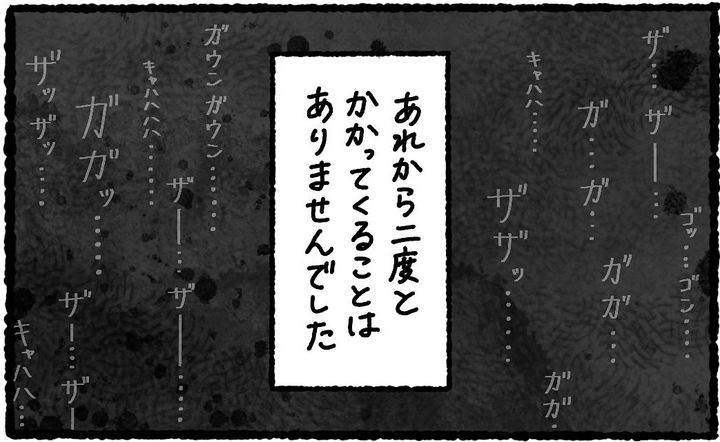 ザ…ザー…
ゴッ…ゴン……
ガ…ガ…
ガガ…
キャハハ……
ザザッ……
ガガ…
あれから二度と
かかってくることは
ありませんでした
ガウンガウン……
キャハハハ……
ザー…ザー……
ガガッ……
ザッザッ……
ザー…ザー
キャハハ…